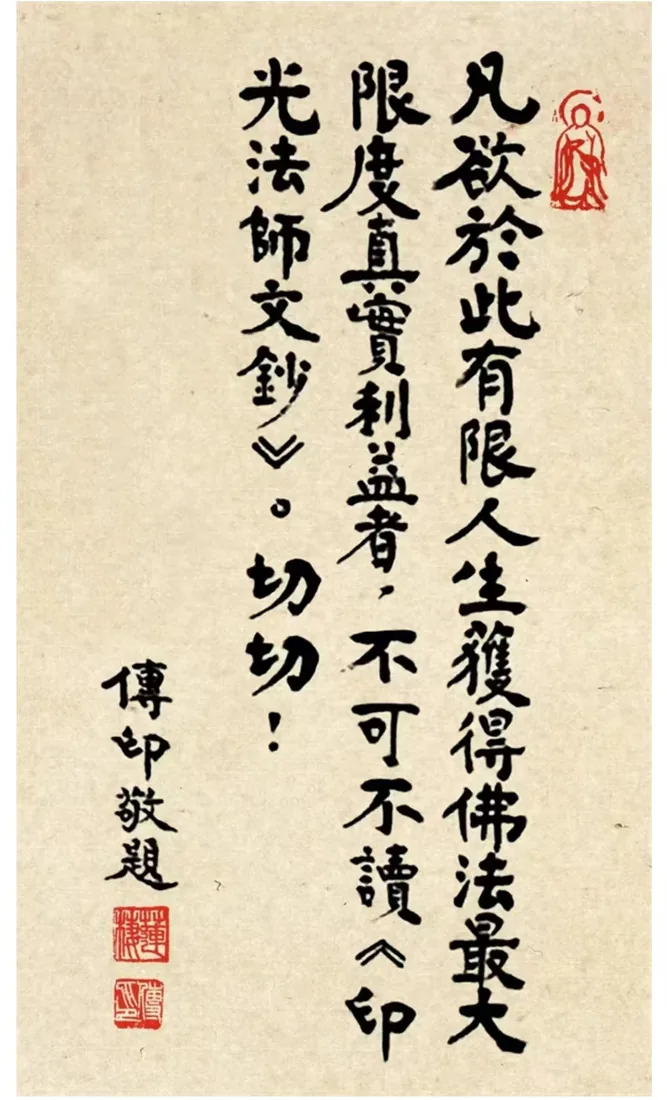 凡欲於此有限人生獲得佛法最大
限度真實利益者，不可不讀《印
光法師文鈔》。切切！
傳印敬題
蓮棲
傳印